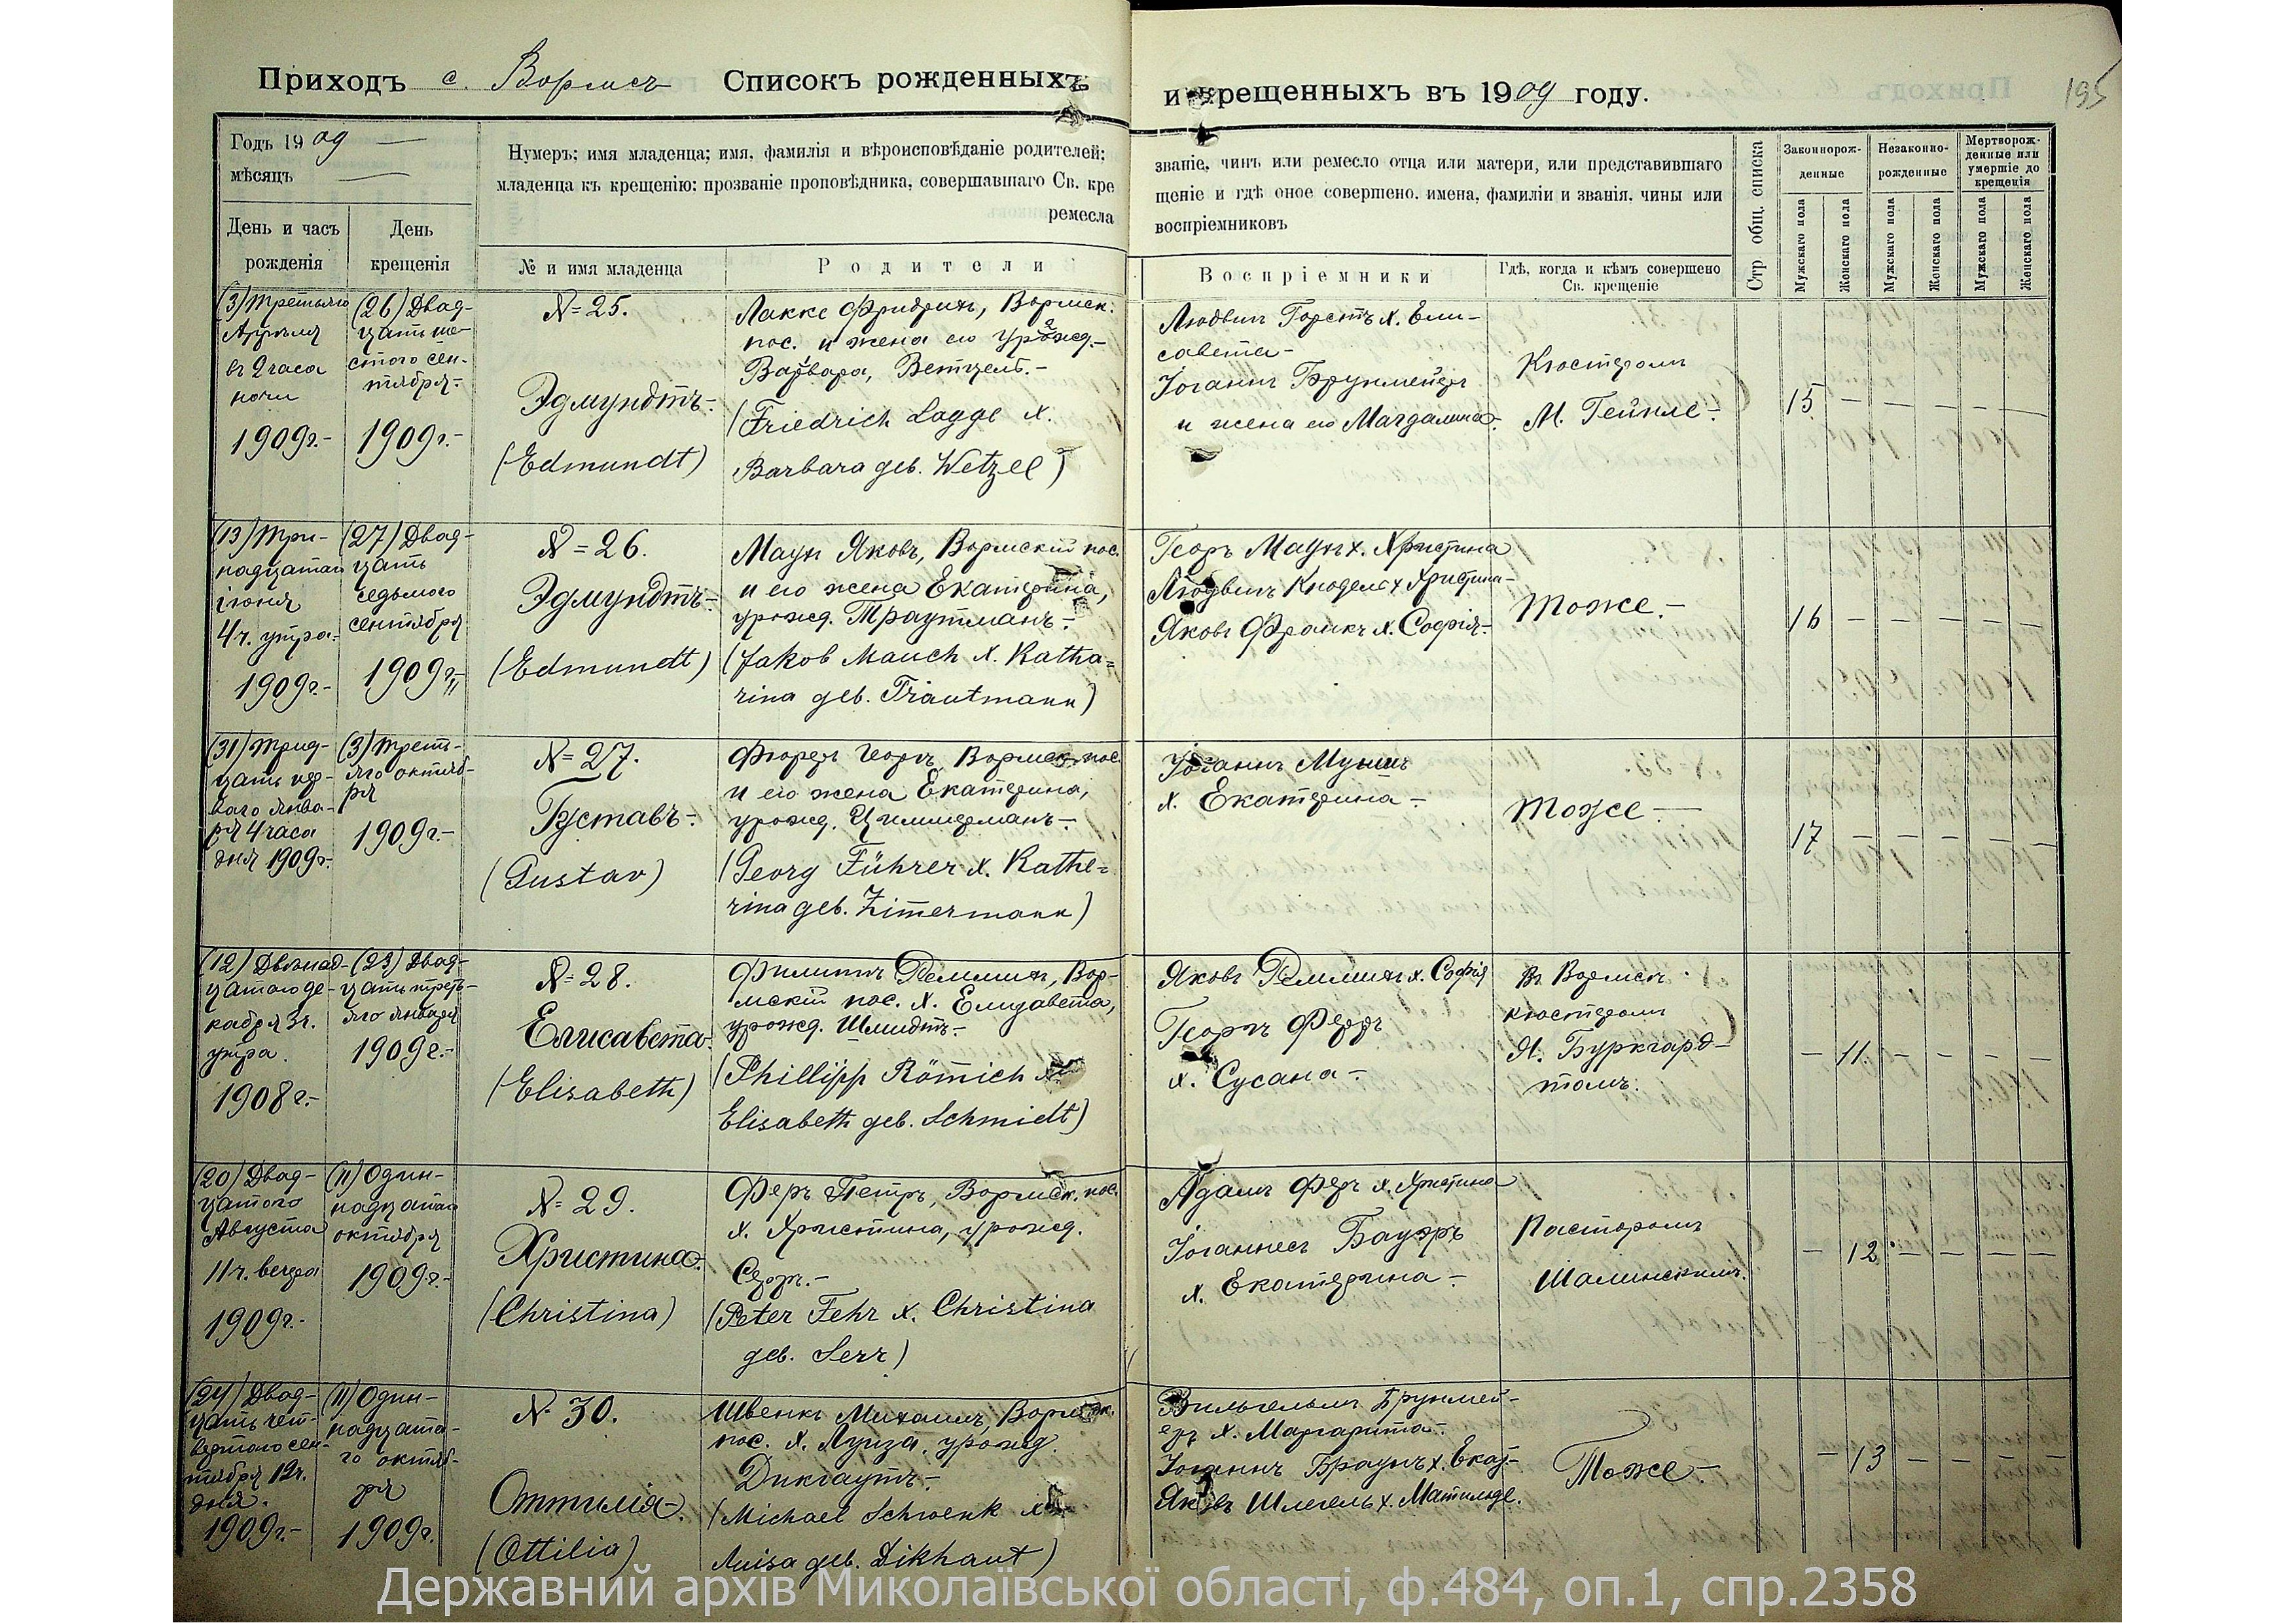 Приходъ с. Вормсъ Списокъ рожденныхъ
и крещенныхъ въ 1909 году.
195
Годъ 1909
мѣсяцъ
День и часъ
рожденія
День
крещенія
Нумеръ; имя младенца; имя, фамилія и вѣроисповѣданіе родителей;
младенца къ крещенію; прозваніе проповѣдника, совершавшаго Св. кре
ремесла
№ и имя младенца
Родители
званіе, чинъ или ремесло отца или матери, или представившаго
щеніе и гдѣ оное совершено, имена, фамиліи и званія, чины или
воспріемниковъ
Воспріемники
Гдѣ, когда и кѣмъ совершено
Св. крещеніе
Стр общ. списка
Законнорож-
денные
Незаконно-
рожденные
Мертворож-
денные или
умершіе до
крещенія
Мужскаго пола
Женскаго пола
Мужскаго пола
Женскаго пола
Мужскаго пола
Женскаго пола
(3) Третьяго
Апрѣля
въ 2 часа
ночи
1909г.-
(26) Двад-
цать ше-
стого сен-
тября.-
1909г.-
N=25.
Эдмундтъ.-
(Edmundt)
Лакке Фридрихъ, Вормск.
пос. и жена его урожд.-
Варвара, Ветцель.-
(Friedrich Lagge x.
Barbara geb. Wetzel)
Людвигъ Горстъ х. Ели-
савета-
Іоганнъ Брукмейеръ
и жена его Магдалина.-
Кюстеромъ
М. Гейнле.-
15 - - - - -
(13) Три-
надцатаго
іюня
4ч. утра.-
1909г.-
(27) Двад-
цать
седьмого
сентября
1909г.
N=26.
Эдмундтъ.-
(Edmundt)
Маух Яковъ, Вормскій пос.
и его жена Екатерина,
урожд. Траутманъ.-
(Jakob Mauch x. Katha=
rina geb. Trautmann)
Георъ Маухъ х. Христина
Людвигъ Кноделъ х Христина-
Яковъ Франкъ х. Софія.-
Тоже.-
16 - - - - -
(31) Трид-
цать пер-
ваго янва-
ря 4 часа
дня 1909г.
(3) Треть-
яго октяб-
ря
1909г.-
N=27.
Густавъ.-
(Gustav)
Фюреръ Георгъ, Вормск. пос.
и его жена Екатерина,
урожд. Циммерманъ.-
(Georg Führer x. Kathe=
rina geb. Zimermann)
Іоганнъ Муншъ
х. Екатерина-
Тоже.-
17 - - - - -
(12) Двѣнад-
цатаго де-
кабря 3ч.
утра.
1908г.-
(23) Двад-
цать треть-
яго января
1909г.-
N=28.
Елисавета.
(Elisabeth)
Филиппъ Реммихъ, Вор-
мскій пос. х. Елизавета,
урожд. Шмидтъ.-
(Phillipp Römich x.
Elisabeth geb. Schmidt)
Яковъ Реммихъ х. Софія
Георгъ Ферръ
х. Сусана.-
Въ Вормсъ
кюстеромъ
Я. Буркгард-
томъ.
- 11. - - - -
(20) Двад-
цатого
Августа
11ч. вечера
1909г.-
(11) Один-
надцатаго
октября
1909г.-
N=29.
Христина.-
(Christina)
Феръ Петръ, Вормск. пос.
х. Христина, урожд.
Серръ.-
(Peter Fehr x. Christina
geb. Serr)
Адамъ Феръ х. Христина
Іоганнесъ Бауэръ
х. Екатерина.-
Пасторомъ
Шалинскимъ.
- 12. - - - -
(24) Двад-
цать чет-
вертого сен-
тября 12ч.
дня.
1909г.-
(11) Один-
надцата-
го октяб-
ря
1909г.
N 30.
Оттилія.
(Ottilia)
Швенкъ Михаилъ, Вормск.
пос. х. Луиза, урожд.
Дикгаутъ.-
(Michael Schwenk x.
Luisa geb. Dikhaut)
Вильгельмъ Брукмей-
еръ х. Маргарита.-
Іоганнъ Браунъ х. Екат.-
Яковъ Шлегель х. Матильде.
Тоже.-
- 13 - - - -
Державний архів Миколаївської області, ф.484, оп.1, спр.2358